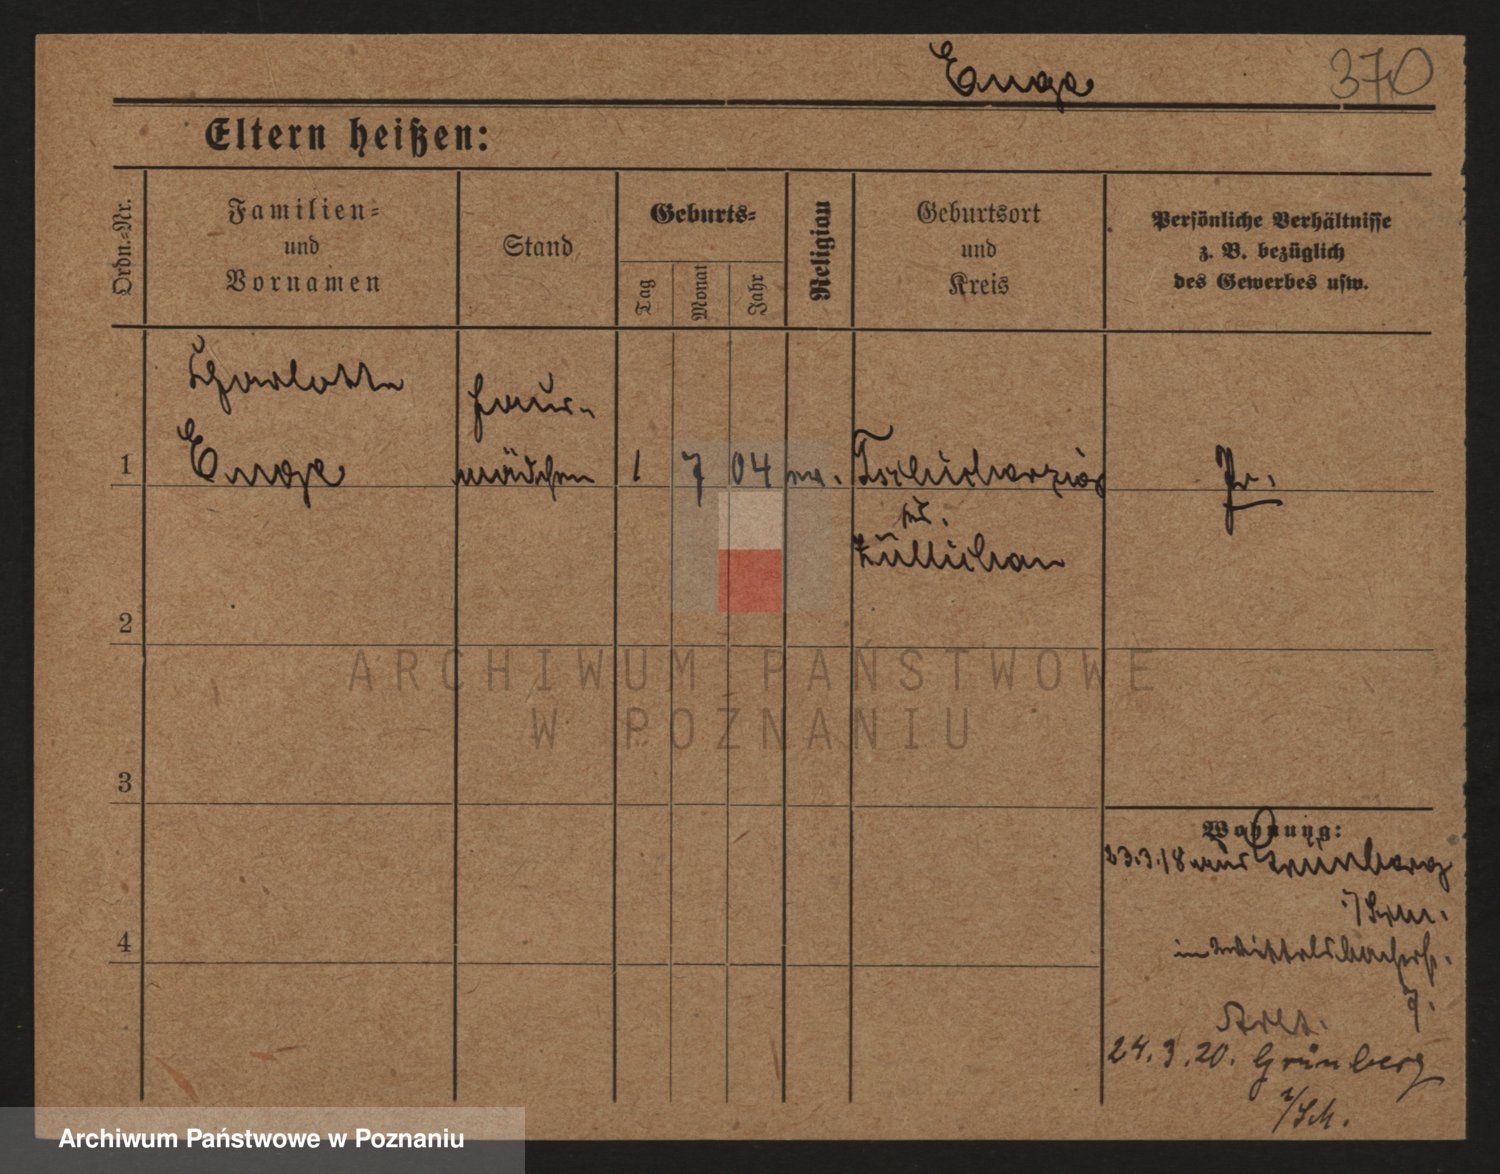 Enge 370
Eltern heißen:
Ordn.-Nr.
Familien-
und
Vornamen
Stand
Geburts-
Tag
Monat
Jahr
Religion
Geburtsort
und
Kreis
Persönliche Verhältnisse
z. B. bezüglich
des Gewerbes usw.
Charlotte
Haus-
Enge
1
mädchen 1 7 04 Tschicherzig Pr.
Züllichau
2
ARCHIWUM PAŃSTWOWE
W POZNANIU
3
Wohnung:
23.3.18 aus Grünberg
4
in Wittelsbacherst.
7.
24.3.20. Grünberg
i/Sch.
Archiwum Państwowe w Poznaniu